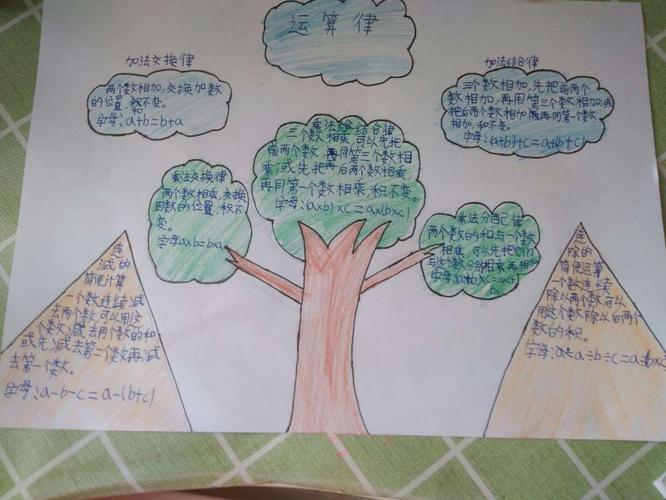 运算律
加法交换律
两个数相加,交换加数
的位置,积不变。
和
字母:a+b=b+a
加法结合律
三个数相加,先把前两个
数相加,再用第三个数相加;或
把后两个数相加,再同第一个数
相加,和不变。
字母:(a+b)+c=a+(b+c)
乘法结合律
三个数相乘,可以先把
前两个数,再同第三个数相
乘;或先把再后两个数相乘
再同第一个数相乘,积不变。
字母:(a×b)×c=a×(b×c)
乘法交换律
两个数相乘,交换
因数的位置,积不
变。
字母:a×b=b×a
乘法分配律
两个数的和与一个数
相乘,可以先把它们
与这个数分别相乘,再相加
字母:
连
减的
简便计算
一个数连续减
去两个数,可以用这
个数减去两个数的和
或先减去第二个数再减
去第一个数。
字母:a-b-c=a-(b+c)
连
除的
简便运算
一个数连续
除以两个数,可以
用这个数除以后两个
数的积。
字母:a÷b÷c=a÷(b×c)